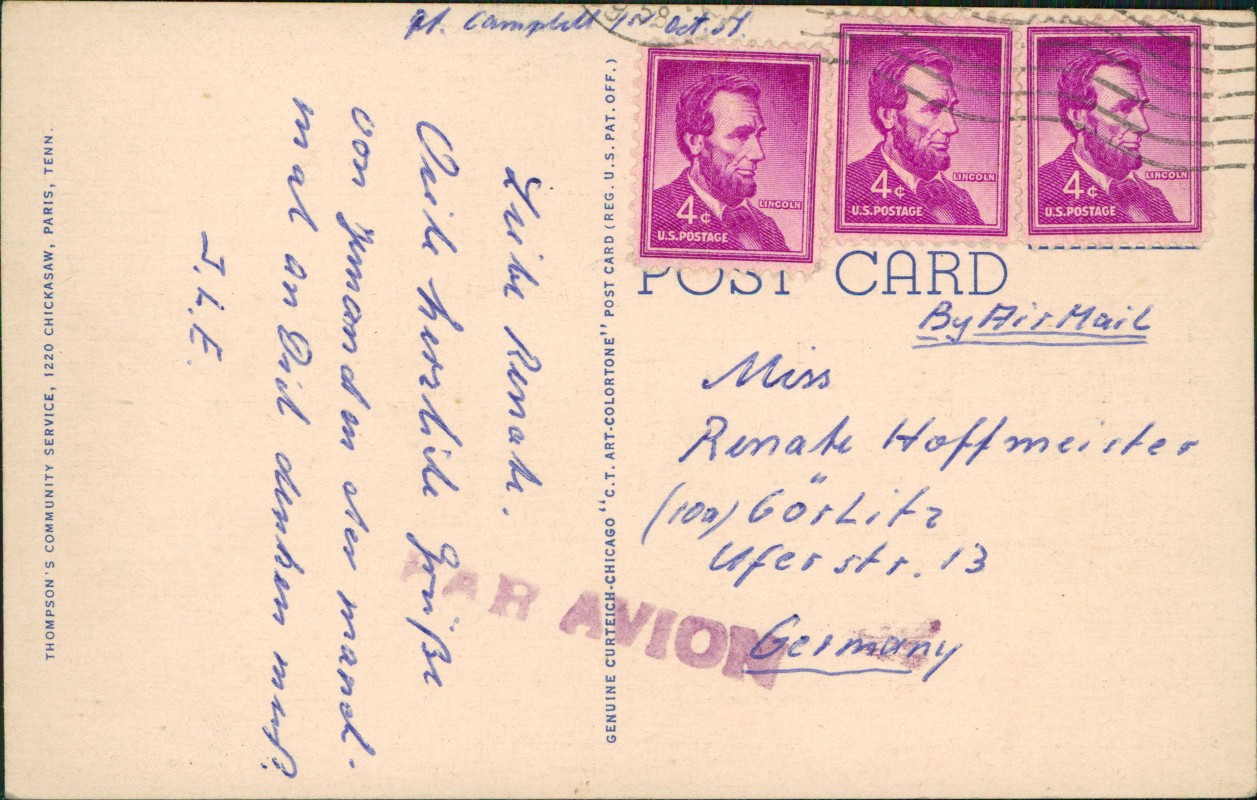 Ft. Campbell 1st Oct. 51.
Liebe Renate.
Viele herzliche Grüße
von Jemand en der manch-
mal an Dich denken muß?
J. L. E.
THOMPSON'S COMMUNITY SERVICE, 1220 CHICKASAW, PARIS, TENN.
GENUINE CURTEICH-CHICAGO "C.T. ART-COLORTONE" POST CARD (REG. U.S. PAT. OFF.)
LINCOLN
4¢
U.S.POSTAGE
LINCOLN
4¢
U.S.POSTAGE
LINCOLN
4¢
U.S.POSTAGE
POST CARD
By Air Mail
Miss
Renate Hoffmeister
(10a) Görlitz
Uferstr. 13
Germany
PAR AVION